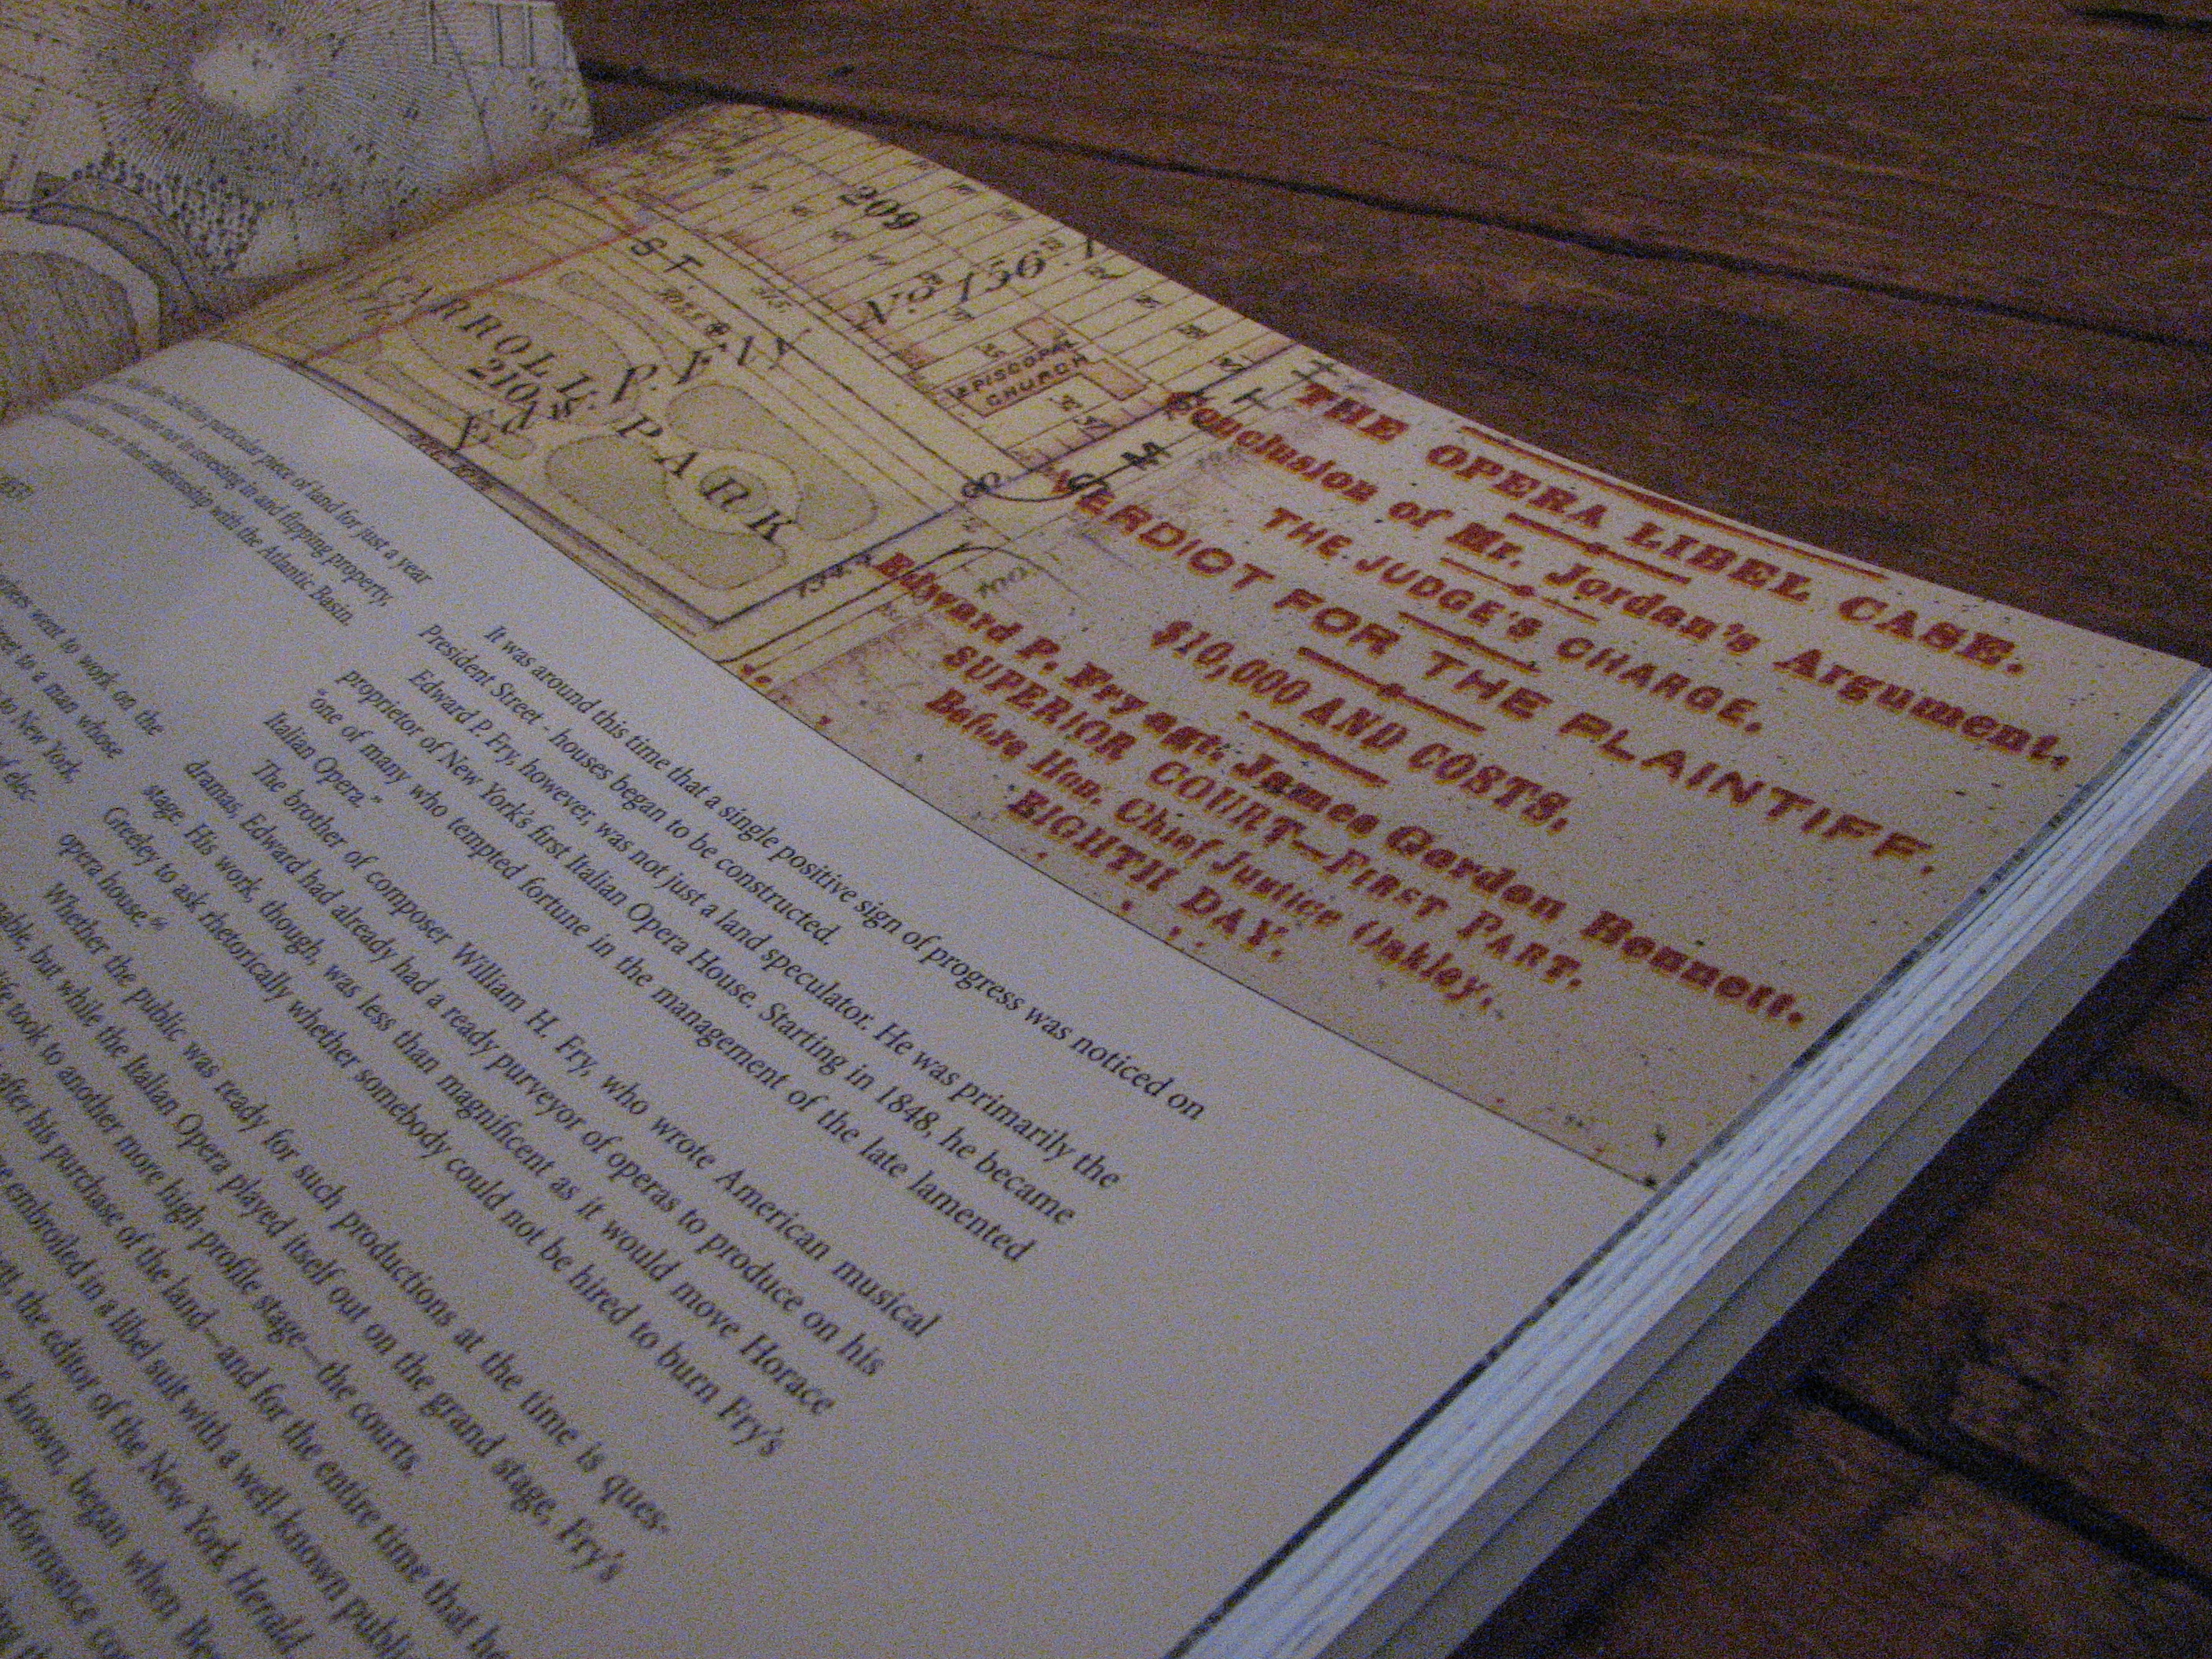 209
No 156
ST.
CARROLL PARK
210
Edw. P. FRY
EPISCOPAL
CHURCH
THE OPERA LIBEL CASE.
Conclusion of Mr. Jordan's Argument.
THE JUDGE'S CHARGE.
VERDICT FOR THE PLAINTIFF.
$10,000 AND COSTS.
Edward P. Fry agt. James Gordon Bennett.
SUPERIOR COURT—FIRST PART.
Before Hon. Chief Justice Oakley.
EIGHTH DAY.
particular piece of land for just a year
in investing in and flipping property,
relationship with the Atlantic Basin.
went to work on the
to a man whose
to New York,
of elec-
It was around this time that a single positive sign of progress was noticed on
President Street - houses began to be constructed.
Edward P. Fry, however, was not just a land speculator. He was primarily the
proprietor of New York's first Italian Opera House. Starting in 1848, he became
"one of many who tempted fortune in the management of the late lamented
Italian Opera."
The brother of composer William H. Fry, who wrote American musical
dramas, Edward had already had a ready purveyor of operas to produce on his
stage. His work, though, was less than magnificent as it would move Horace
Greeley to ask rhetorically whether somebody could not be hired to burn Fry's
opera house."
Whether the public was ready for such productions at the time is ques-
but while the Italian Opera played itself out on the grand stage, Fry's
took to another more high-profile stage—the courts.
after his purchase of the land—and for the entire time that he
embroiled in a libel suit with a well-known
the editor of the New York Herald
known, began when
performance